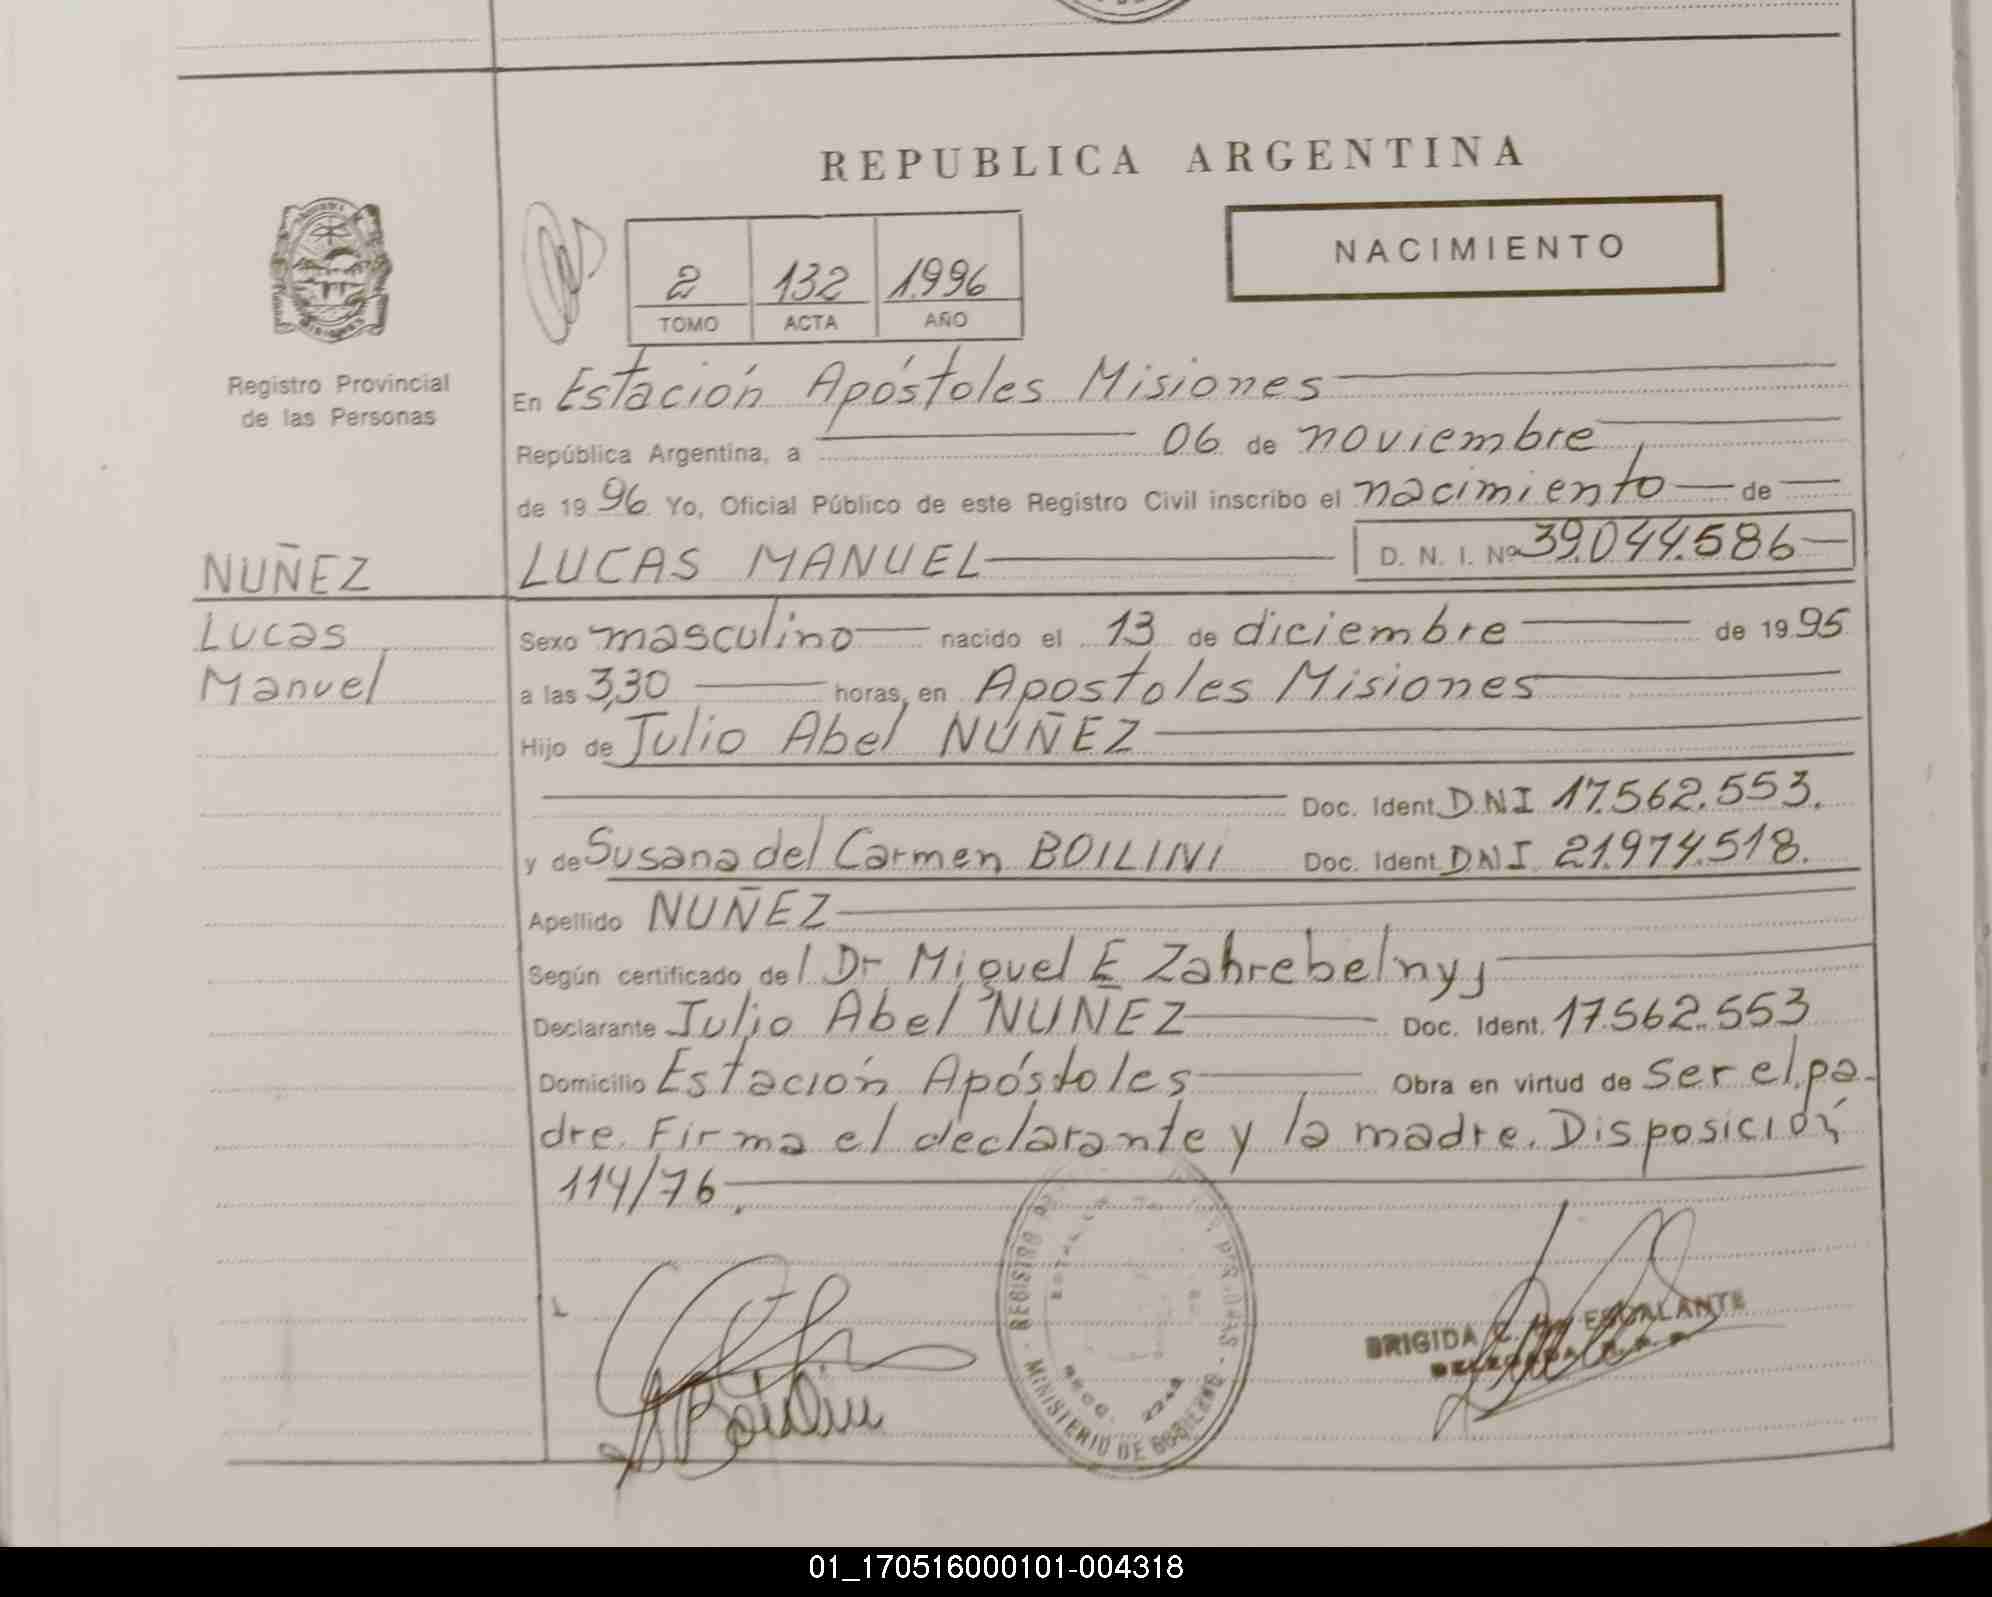 REPUBLICA ARGENTINA
NACIMIENTO
2 132 1996
TOMO ACTA AÑO
Registro Provincial
de las Personas
En Estación Apóstoles Misiones
República Argentina, a 06 de noviembre
de 1996 Yo, Oficial Público de este Registro Civil inscribo el nacimiento de
NUÑEZ LUCAS MANUEL D. N. I. Nº 39.044.586
Lucas
Manuel
Sexo masculino nacido el 13 de diciembre de 1995
a las 3,30 horas, en Apostoles Misiones
Hijo de Julio Abel NUÑEZ
Doc. Ident. D.N.I 17.562.553.
y de Susana del Carmen BOILINI Doc. Ident. DNI 21.974.518.
Apellido NUÑEZ
Según certificado del Dr Miguel E Zahrebelnyj
Declarante Julio Abel NUÑEZ Doc. Ident. 17.562.553
Domicilio Estación Apóstoles Obra en virtud de ser el pa-
dre. Firma el declarante y la madre. Disposición
114/76.
REGISTRO
MINISTERIO DE GOBIERNO
BRIGIDA ESCALANTE
DELEGADA
01_170516000101-004318